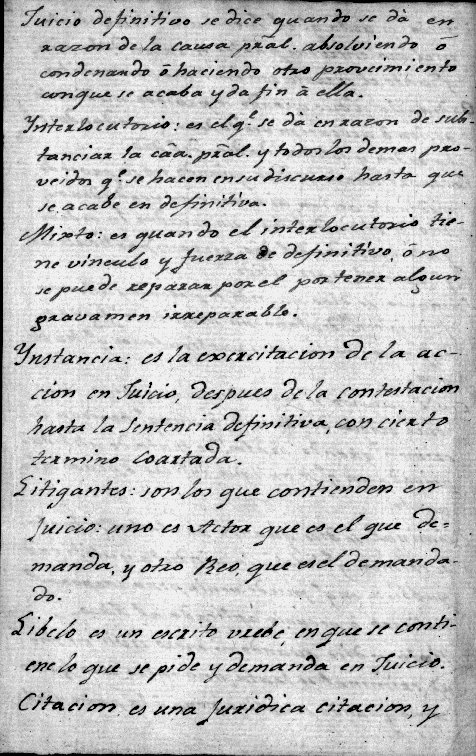 Juicio definitivo se dice quando se dà en
razon de la causa pr̃al. absolviendo ō
condenando ō haciendo otro proveimiento
conque se acaba y da fin ā ella.
Ynterlocutorio: es el q.ͤ se dà en razon de subs-
tanciar la cãa. pr̃al. y todos los demas pro-
veidos q.ͤ se hacen en su discurso hasta que
se acabe en definitiva.
Mixto: es quando el interlocutorio tie-
ne vinculo y fuerza de definitivo, ō no
se puede reparar por el por tener algun
gravamen irreparable.
Ynstancia: es la exercitacion de la ac-
cion en Juicio, despues de la contestacion
hasta la Sentencia definitiva, con cierto
termino Coartada.
Litigantes: son los que contienden en
Juicio: uno es Actor que es el que de=
manda, y otro Reo, que es el demanda-
do.
Libelo es un escrito vrebe, en que se conti-
ene lo que se pide y demanda en Juicio.
Citacion es una Juridica citacion, y